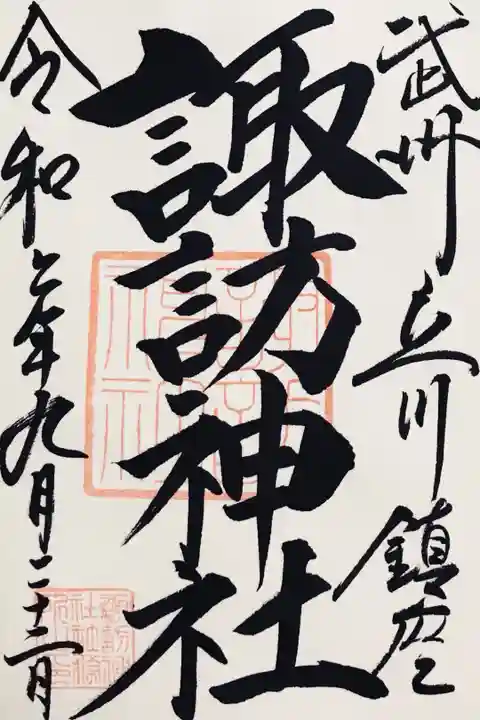 武州立川鎮座
諏訪神社
令和六年九月二十二日